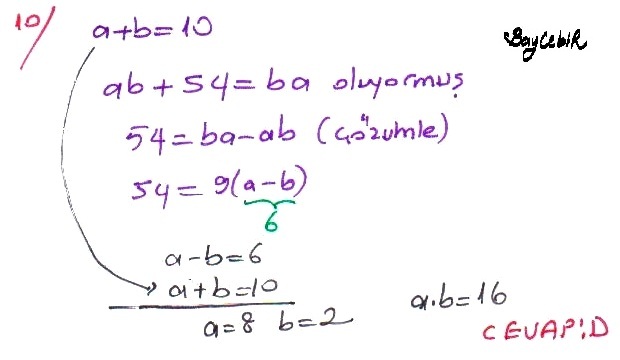 10/ a+b=10
BayCebiR
ab+54=ba oluyormuş
54=ba-ab (çözümle)
54=9(a-b)
6
a-b=6
a+b=10
a=8 b=2
a.b=16
CEVAP:D